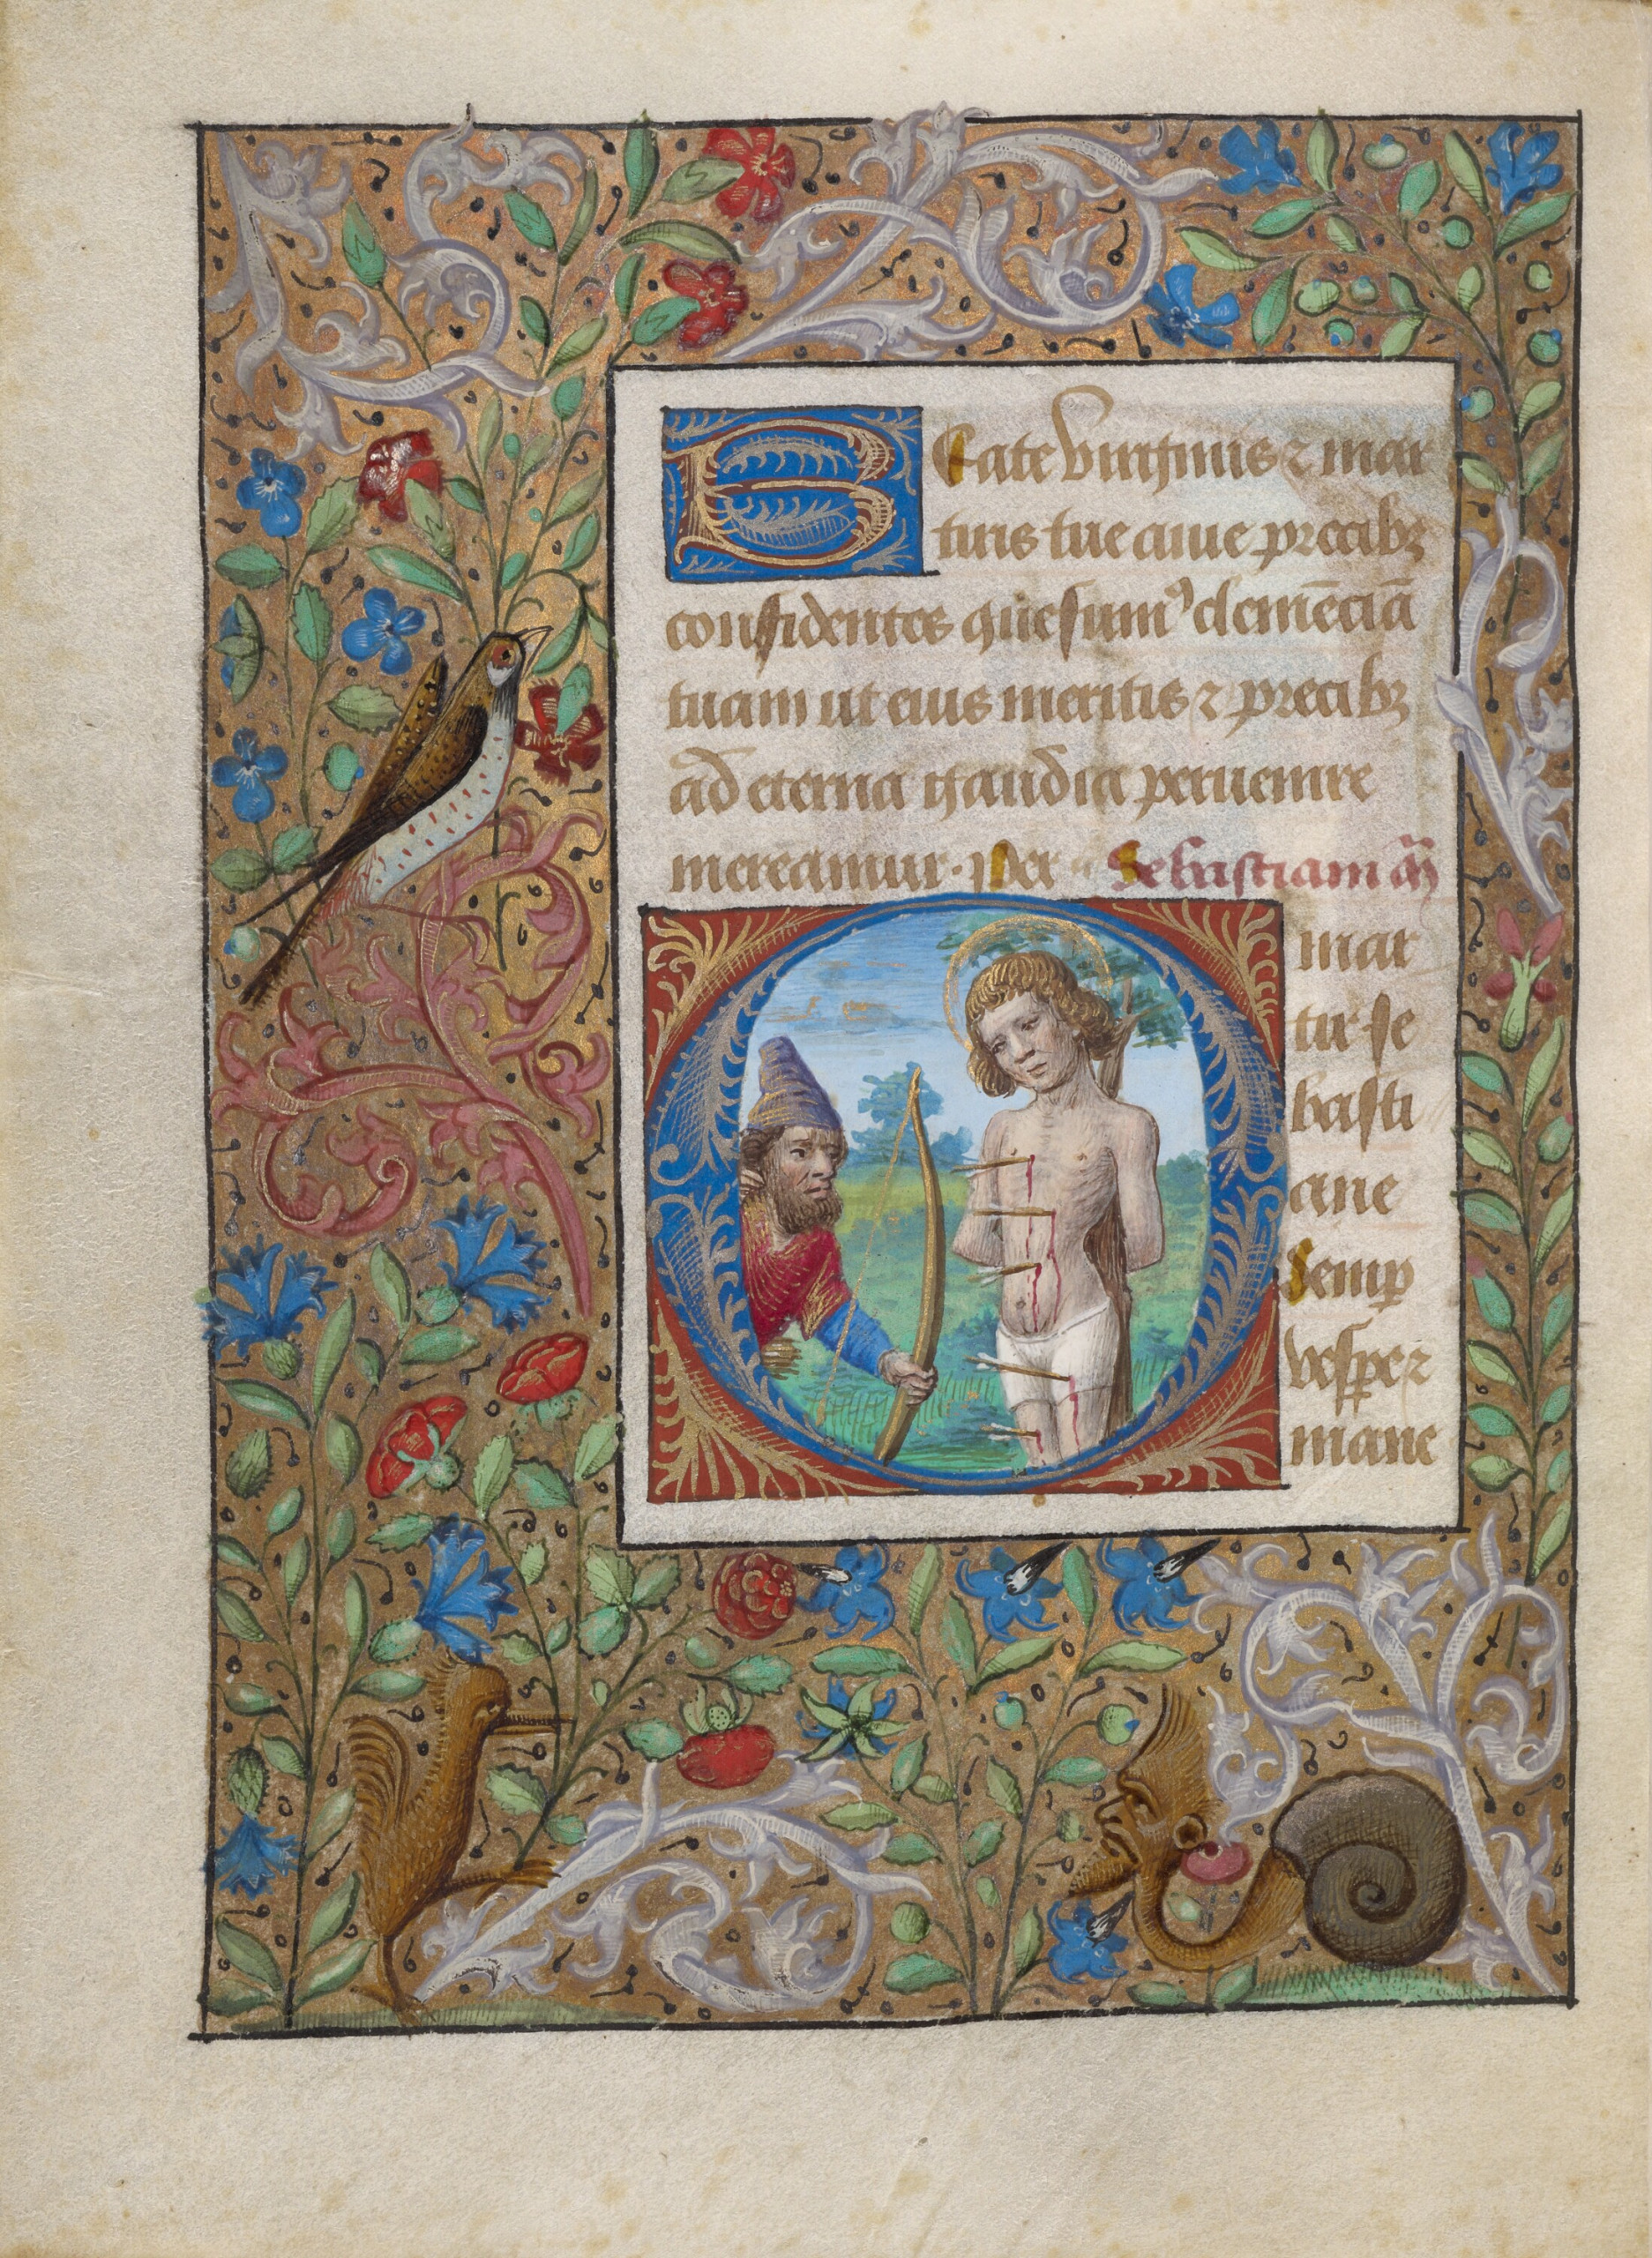 Beate virginis ⁊ mar
tiris tue aiue precibꝫ
confidentes quesumꝰ clemēciā
tuam ut eius meritis ⁊ precibꝫ
ad eterna gaudia peruenire
mereamur · Per Sebastiani
O mar
tir se
basti
ane
Semp
vesper
mane